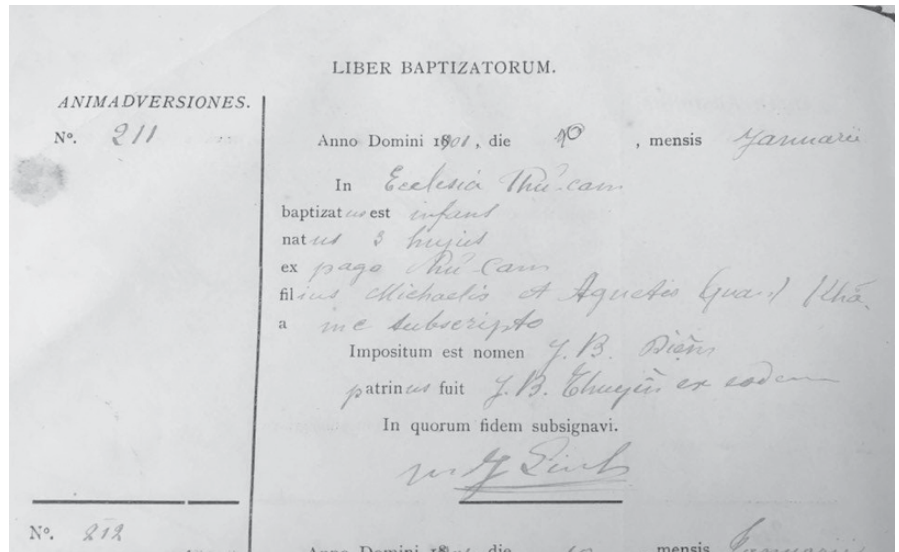 LIBER BAPTIZATORUM.
ANIMADVERSIONES.
Nº. 211
Anno Domini 1901, die 10, mensis Januarii
In Ecclesia Thú-cam
baptizatus est infans
natus 3 hujus
ex pago Thú-Cam
filius Michaelis et Agnetis
a me subscripto
Impositum est nomen J. B.
patrinus fuit J. B. ex eodem
In quorum fidem subsignavi.
Nº. 212
Anno Domini 1901, die 10, mensis Januarii